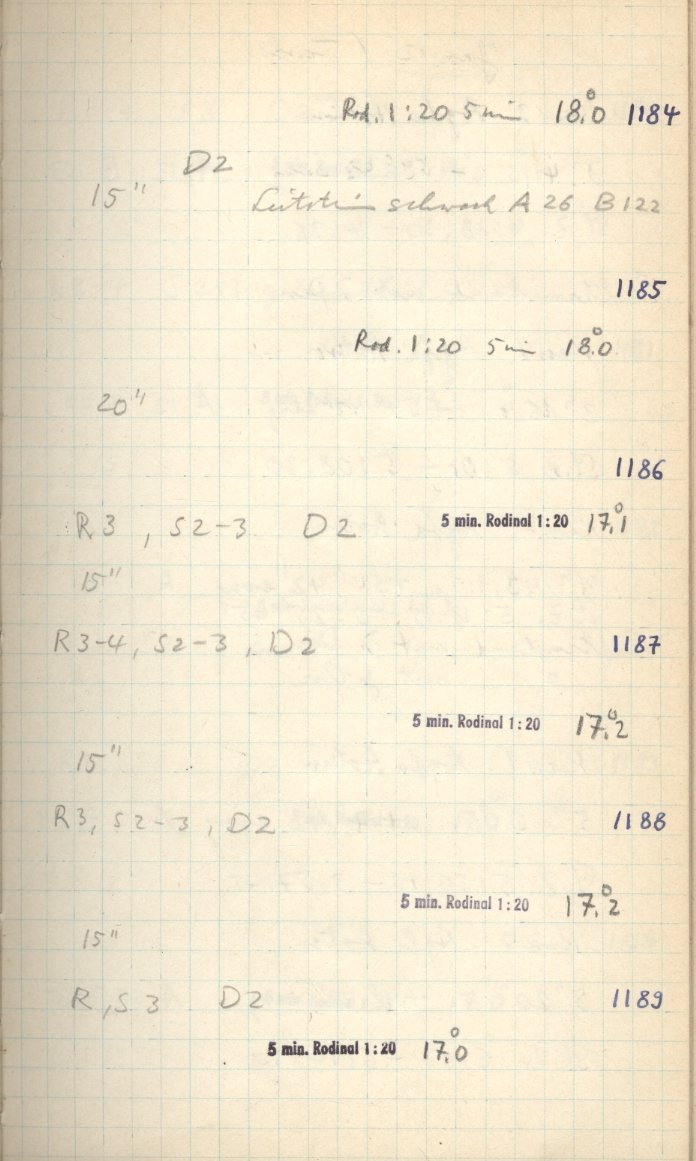 Rod. 1:20 5 min 18.°0 1184
D2
15" Leitstern schwach A 26 B 122
1185
Rod. 1:20 5 min 18.°0
20"
1186
R3, S2-3 D2 5 min. Rodinal 1:20 17.°1
15"
R3-4, S2-3, D2 1187
5 min. Rodinal 1:20 17.°2
15"
R3, S2-3, D2 1188
5 min. Rodinal 1:20 17.°2
15"
R, S 3 D2 1189
5 min. Rodinal 1:20 17.°0